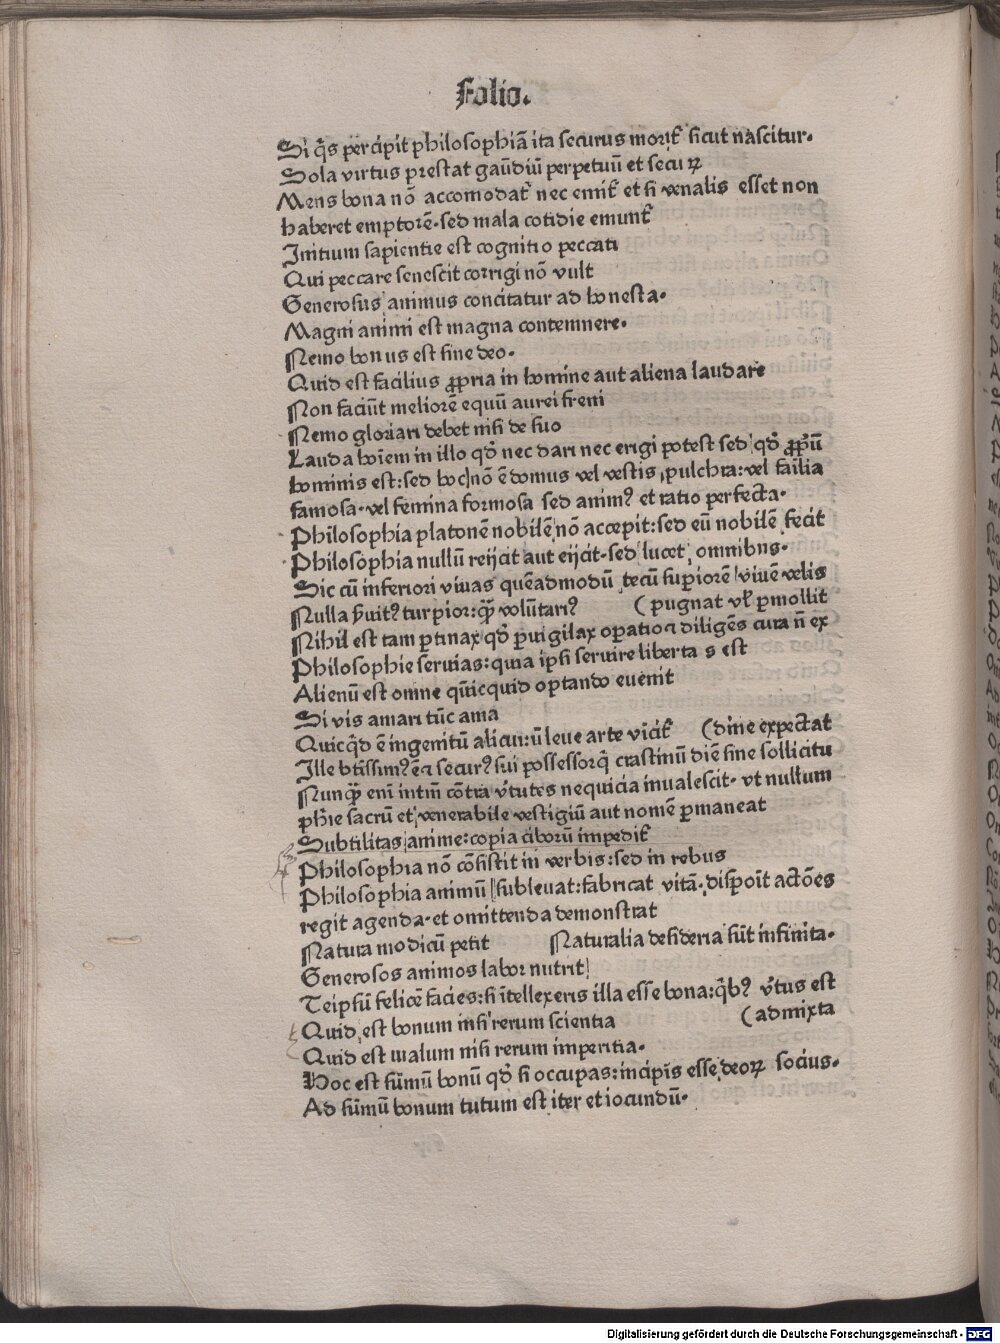 Folio.
Si q̄s percipit philosophiā ita securus morit̄ sicut nascitur.
Sola virtus prestat gaūdiū perpetuū et secuꝝ
Mens bona nō accomodat̄ nec emit̄ et si venalis esset non
haberet emptorē. sed mala cotidie emunt̄
Initium sapientie est cognitio peccati
Qui peccare senescit corrigi nō vult
Generosus animus concitatur ad honesta.
Magni animi est magna contemnere.
Nemo bonus est sine deo.
Quid est facilius ꝓpria in homine aut aliena laudare
Non faciūt meliorē equū aurei freni
Nemo gloriari debet nisi de suo
Lauda hoīem in illo qd̄ nec dari nec erigi potest sed qd̄ ꝓpriū
hominis est: sed hoc nō ē domus vel vestis pulchra: vel failia
famosa. vel femina formosa sed animꝰ et ratio perfecta.
Philosophia platonē nobilē nō accepit: sed eū nobilē fecit
Philosophia nullū reijcit aut eijcit. sed lucet omnibus.
Sic cū inferiori viuas quēadmodū tecū supiorē viuē velis
Nulla ẜuitꝰ turpior: ꝙ̄ volūtariꝰ ( pugnat vl̄ ꝑmollit
Nihil est tam ꝑtinax qd̄ ꝑuigilax opatio ⁊ diligēs cura n̄ ex
Philosophie seruias: quia ipsi seruire libertas est
Alienū est omne qūicquid optando euenit
Si vis amari tūc ama
Quicq̄d ē ingenitū alicui: ū leue arte vīcit̄ (dine expectat
Ille btīssimꝰ ē ⁊ securꝰ sui possessorq̄ crastinū diē sine sollicitu
Nunꝙ̄ eni intm̄ cōtra v̄tutes nequicia inualescit. vt nullum
phīe sacrū et venerabile vestigiū aut nomē ꝑmaneat
Subtilitas anime: copia ciborū impedit̄
Philosophia nō cōsistit in verbis: sed in rebus
Philosophia animū subleuat: fabricat vitā. dispoīt actōes
regit agenda. et omittenda demonstrat
Natura modicū petit Naturalia desideria sūt infinita.
Generosos animos labor nutrit
Teipsū felicē facies: si ītellexeris illa esse bona: q̄bꝰ v̄tus est
Quid est bonum nisi rerum scientia (admixta
Quid est malum nisi rerum imperitia.
Hoc est sūmū bonū qd̄ si occupas: incipis esse deoꝝ socius.
Ad sūmū bonum tutum est iter et iocundū.
Digitalisierung gefördert durch die Deutsche Forschungsgemeinschaft - DFG